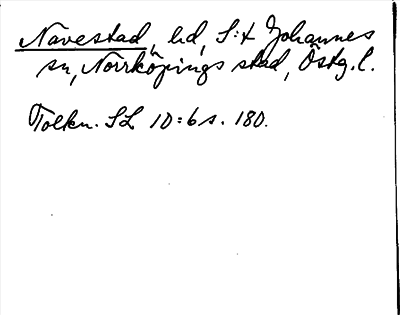 Navestad, hd, S:t Johannes
sn, Norrköpings stad, Östg. l.
Tolkn. SL 10:6 s. 180.